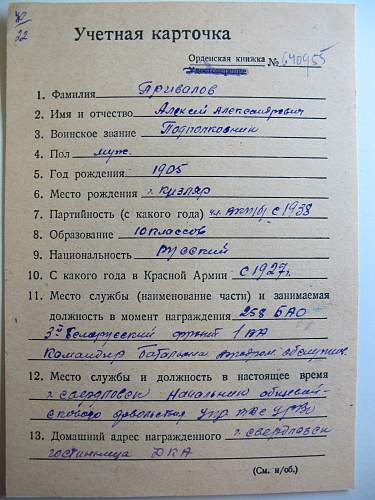 22
Учетная карточка
Орденская книжка
Удостоверение № 640955
1. Фамилия Привалов
2. Имя и отчество Алексей Александрович
3. Воинское звание Подполковник
4. Пол муж.
5. Год рождения 1905
6. Место рождения г. Кизляр
7. Партийность (с какого года) чл. ВКП/б/ с 1938
8. Образование 10 классов
9. Национальность Русский
10. С какого года в Красной Армии с 1927 г.
11. Место службы (наименование части) и занимаемая
должность в момент награждения 258 БАО
3й Белорусский фронт 1 ВА
Командир Батальона аэродром. обслужив.
12. Место службы и должность в настоящее время
г. Свердловск Начальник общевой-
скового довольствия УрВО
13. Домашний адрес награжденного г. Свердловск
гостинница ДКА
(См. н/об.)